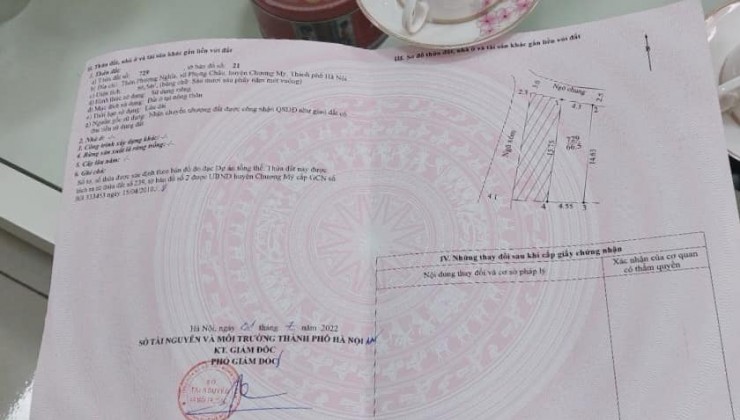 II. Thửa đất, nhà ở và tài sản khác gắn liền với đất
1. Thửa đất:
a) Thửa đất số: 729 tờ bản đồ số: 21
b) Địa chỉ: Thôn Phương Nghĩa, xã Phụng Châu, huyện Chương Mỹ, Thành phố Hà Nội
c) Diện tích: 66,5m², (bằng chữ: Sáu mươi sáu phẩy năm mét vuông)
d) Hình thức sử dụng: Sử dụng riêng
đ) Mục đích sử dụng: Đất ở tại nông thôn
e) Thời hạn sử dụng: Lâu dài
g) Nguồn gốc sử dụng: Nhận chuyển nhượng đất được công nhận QSDĐ như giao đất có
thu tiền sử dụng đất
2. Nhà ở: -/-
3. Công trình xây dựng khác: -/-
4. Rừng sản xuất là rừng trồng: -/-
5. Cây lâu năm: -/-
6. Ghi chú:
Số tờ, số thửa được xác định theo bản đồ đo đạc Dự án tổng thể. Thửa đất này được
tách ra từ thửa đất số 239, tờ bản đồ số 2 được UBND huyện Chương Mỹ cấp GCN số
ngày 15/04/2010
Hà Nội, ngày tháng 2 năm 2022
SỞ TÀI NGUYÊN VÀ MÔI TRƯỜNG THÀNH PHỐ HÀ NỘI
KT. GIÁM ĐỐC
PHÓ GIÁM ĐỐC
III. Sơ đồ thửa đất, nhà ở và tài sản khác gắn liền với đất
Ngõ chung
2.5
4.3
2
Ngõ xóm
15.75
729
66.5
14.85
4.1
4
4.55
3
IV. Những thay đổi sau khi cấp giấy chứng nhận
Nội dung thay đổi và cơ sở pháp lý
Xác nhận của cơ quan
có thẩm quyền